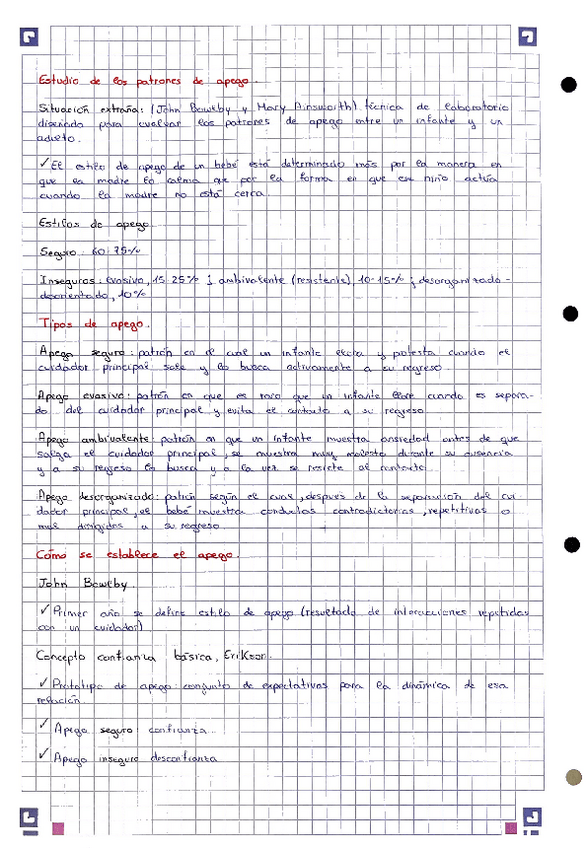 Estudio de los patrones de apego.
Situación extraña: (John Bowlby y Mary Ainsworth) técnica de laboratorio
diseñada para evaluar los patrones de apego entre un infante y un
adulto.
✓ El estilo de apego de un bebé está determinado más por la manera en
que la madre lo calma que por la forma en que en niño actúa
cuando la madre no está cerca.
Estilos de apego
Seguro: 60-75%
Inseguros: evasivo, 15-25%; ambivalente (resistente), 10-15%; desorganizado-
desorientado, 10%
Tipos de apego.
Apego seguro: patrón en el cual un infante llora y protesta cuando el
cuidador principal sale y lo busca activamente a su regreso.
Apego evasivo: patrón en que es raro que un infante llore cuando es separa-
do del cuidador principal y evita el contacto a su regreso
Apego ambivalente: patrón en que un infante muestra ansiedad antes de que
salga el cuidador principal, se muestra muy molesto durante su ausencia
y a su regreso lo busca y a la vez se resiste al contacto.
Apego desorganizado: patrón según el cual, después de la separación del cui-
dador principal, el bebé muestra conductas contradictorias, repetitivas o
mal dirigidas a su regreso
Cómo se establece el apego.
John Bowlby.
✓ Primer año se define estilo de apego (resultado de interacciones repetidas
con un cuidador)
Concepto confianza básica, Erikson.
✓ Prototipo de apego: conjunto de expectativas para la dinámica de esa
relación
✓ Apego seguro confianza
✓ Apego inseguro desconfianza